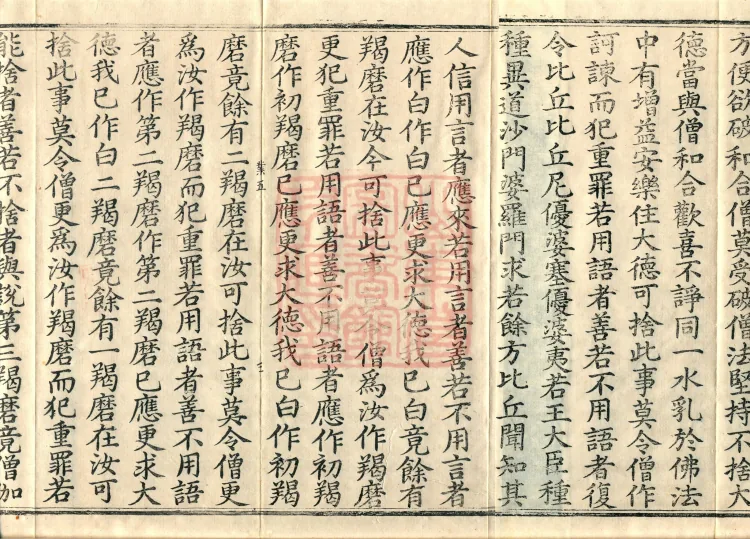 方便欲破和合僧莫受破僧法堅持不捨大
德當與僧和合歡喜不諍同一水乳於佛法
中有增益安樂住大德可捨此事莫令僧作
訶諫而犯重罪若用語者善若不用語者復
令比丘比丘尼優婆塞優婆夷若王大臣種
種異道沙門婆羅門求若餘方比丘聞知其
人信用言者應來若用言者善若不用言者
應作白作白已應更求大德我已白竟餘有
羯磨在汝今可捨此事莫令僧為汝作羯磨
更犯重罪若用語者善不用語者應作初羯
磨作初羯磨已應更求大德我已白作初羯
磨竟餘有二羯磨在汝可捨此事莫令僧更
為汝作羯磨而犯重罪若用語者善不用語
者應作第二羯磨作第二羯磨已應更求大
德我已作白二羯磨竟餘有一羯磨在汝可
捨此事莫令僧更為汝作羯磨而犯重罪若
能捨者善若不捨者與說第三羯磨竟僧伽